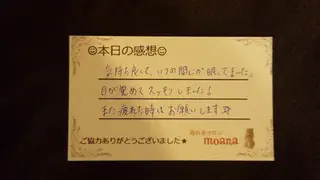 ☺本日の感想☺
気持ち良くて、いつの間にか眠ってました。
目が覚めてスッキリしました!
また疲れた時はお願いします
ご協力ありがとうございました★
moana